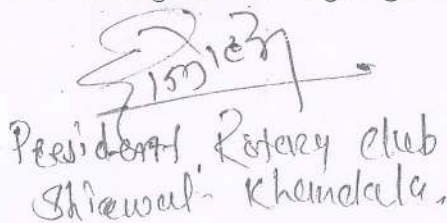 President Rotary club
Shirwal. Khandala.